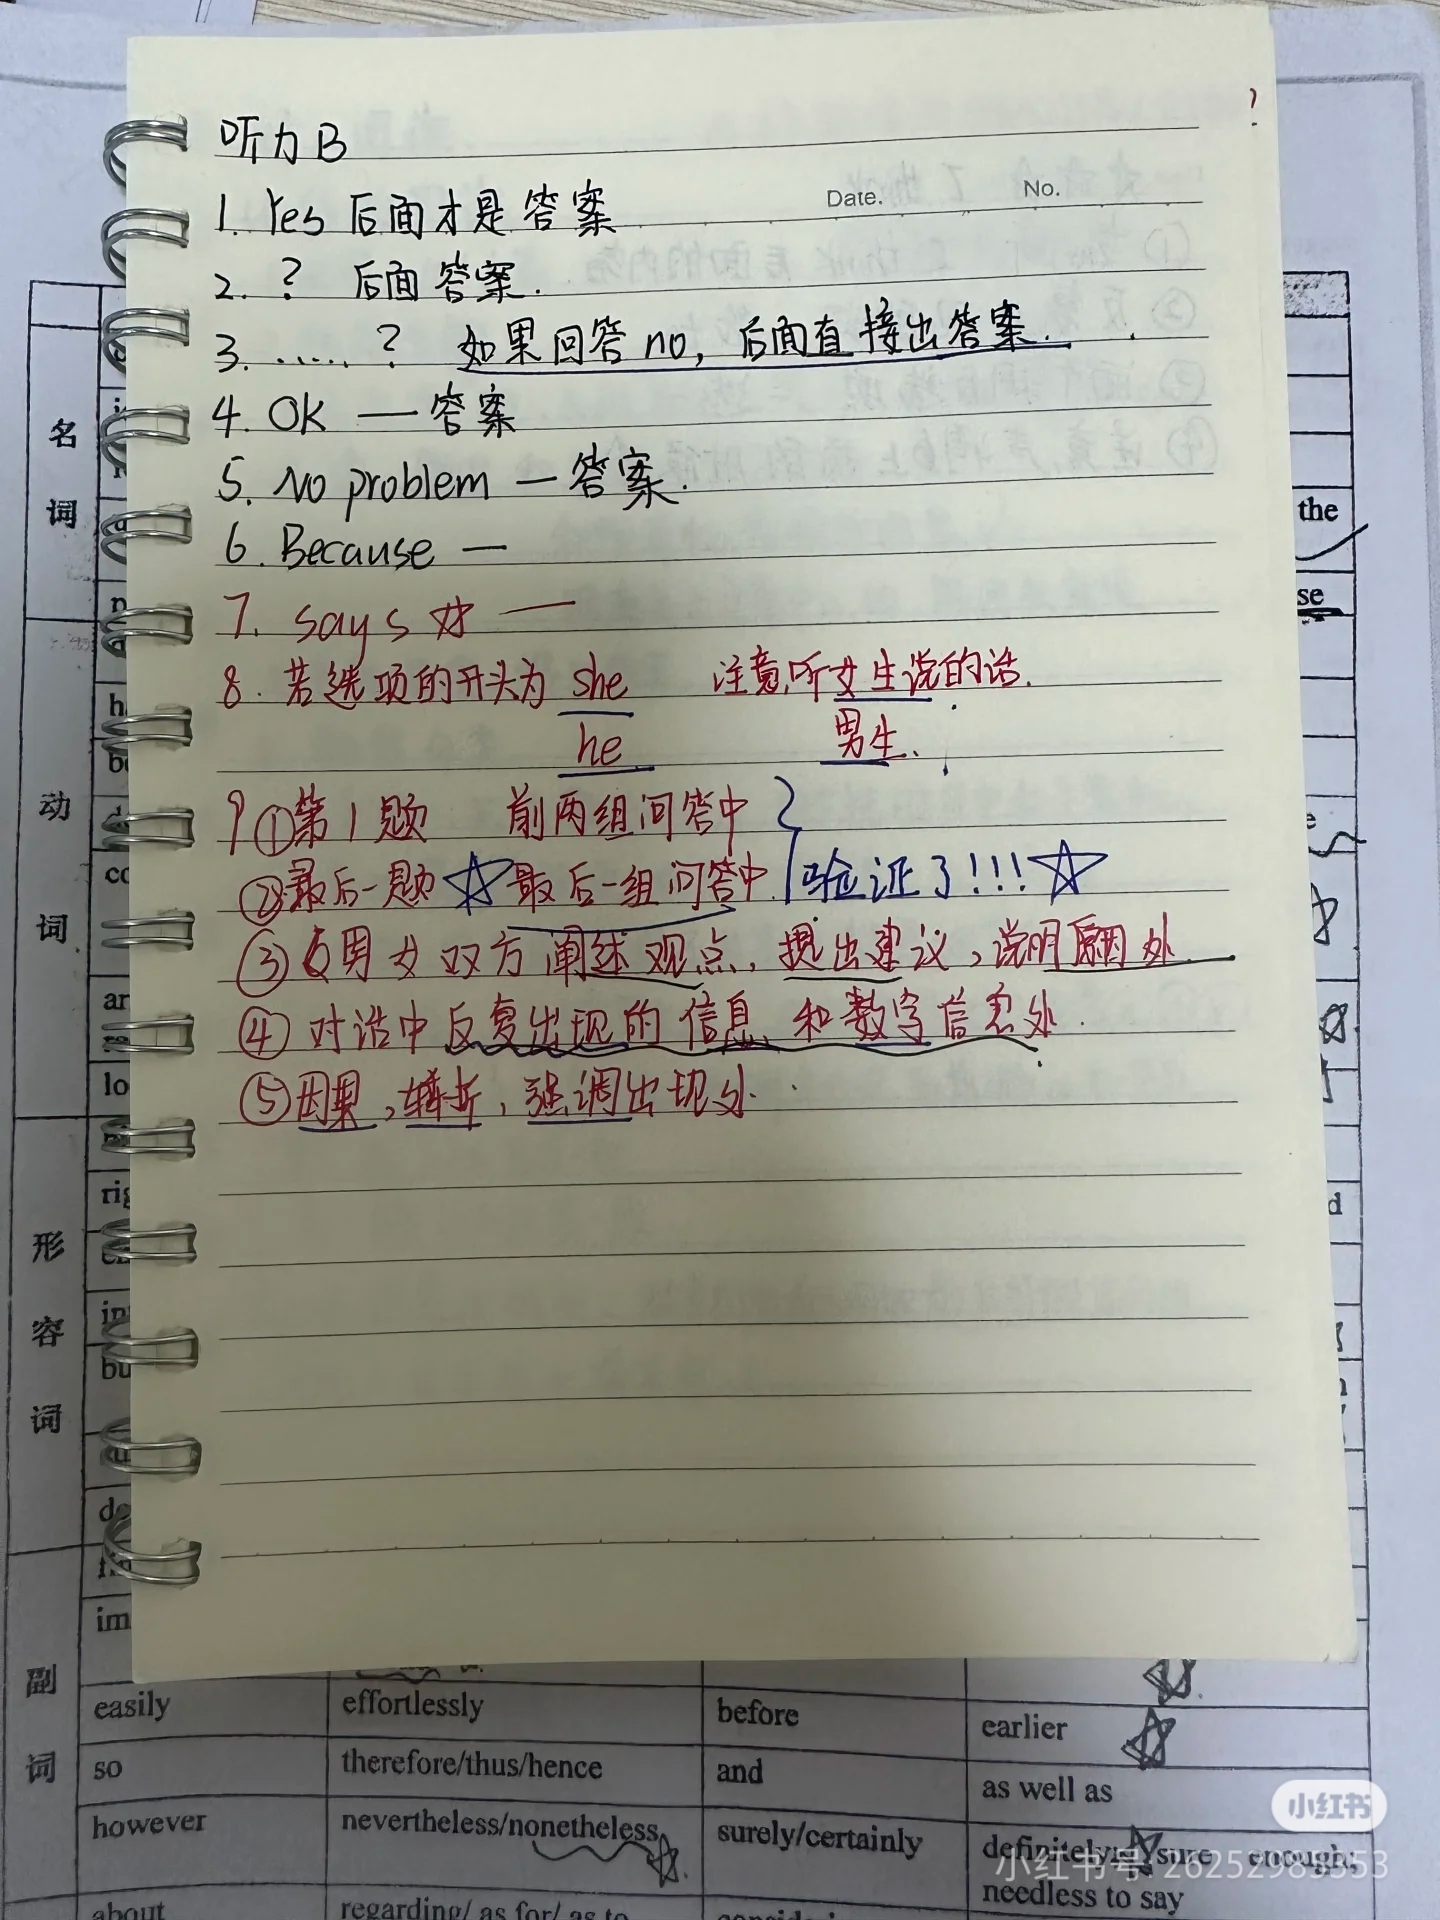 听力B
Date. No.
1. Yes 后面才是答案
2. ? 后面答案.
3. ...... ? 如果回答no, 后面直接出答案.
4. OK — 答案
5. No problem — 答案.
6. Because —
7. says 对 —
8. 若选项的开头为 she 注意听女生说的话.
he 男生.
9 ①第1题 前两组问答中
②最后一题 ☆ 最后一组问答中. 验证了!!! ☆
③男女双方阐述观点, 提出建议, 说明原因处
④对话中反复出现的信息和数字信息处.
⑤因果, 转折, 强调出现处.
名词
动词
形容词
副词
the
se
easily effortlessly before earlier
so therefore/thus/hence and as well as
however nevertheless/nonetheless surely/certainly definitely sure enough;
needless to say
about regarding/ as for/ as to
小红书
小红书号: 26252983553